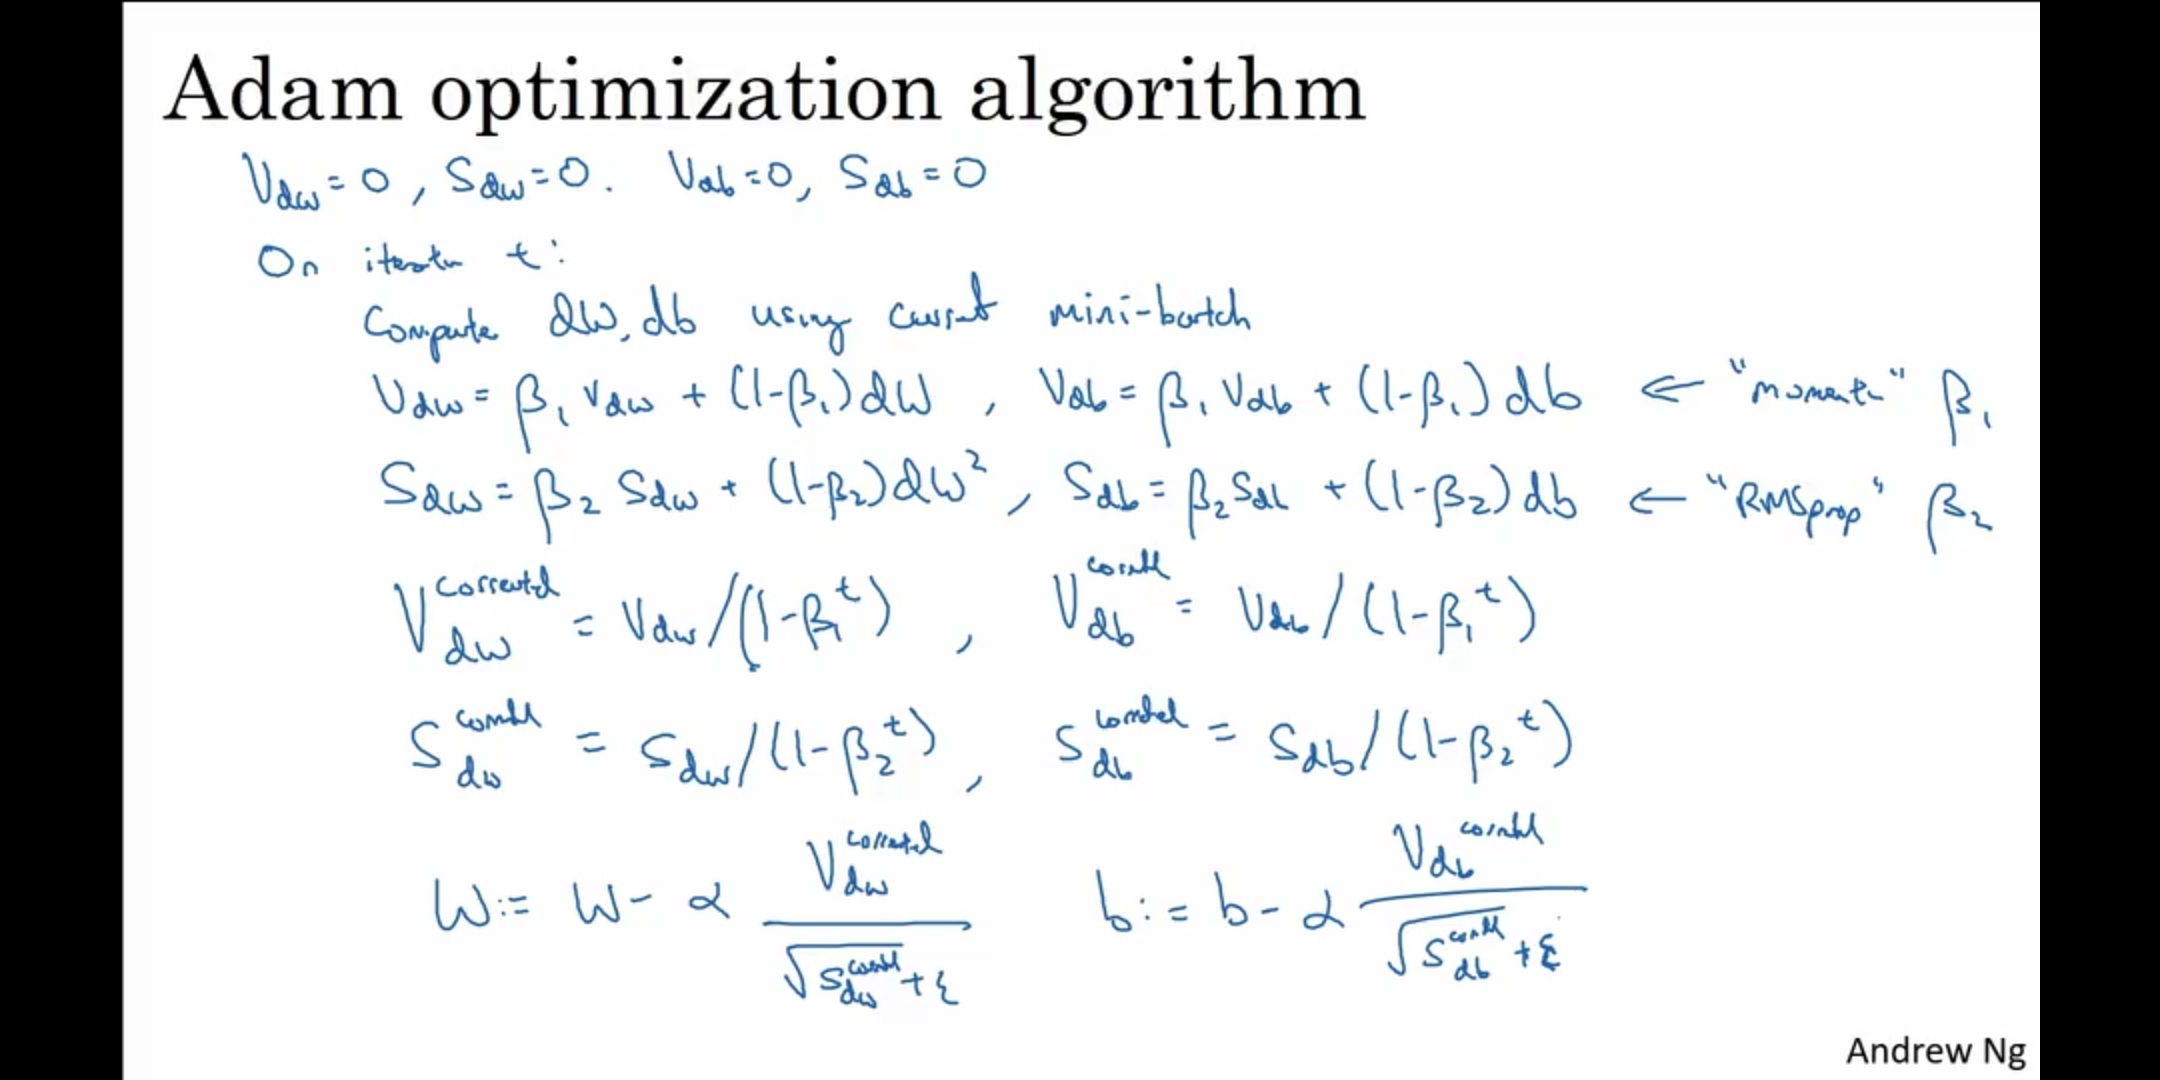 Adam optimization algorithm
V_dw = 0, S_dw = 0. V_db = 0, S_db = 0
On iteration t:
Compute dW, db using current mini-batch
V_dw = β₁ V_dw + (1-β₁) dW, V_db = β₁ V_db + (1-β₁) db ← "moment" β₁
S_dw = β₂ S_dw + (1-β₂) dW², S_db = β₂ S_db + (1-β₂) db ← "RMSprop" β₂
V_dw^corrected = V_dw/(1-β₁^t), V_db^corrected = V_db/(1-β₁^t)
S_dw^corrected = S_dw/(1-β₂^t), S_db^corrected = S_db/(1-β₂^t)
W := W - α V_dw^corrected / (√S_dw^corrected + ε) b := b - α V_db^corrected / (√S_db^corrected + ε)
Andrew Ng